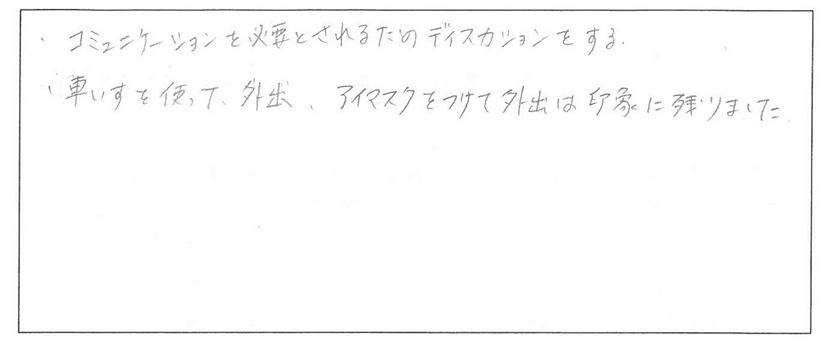 ・コミュニケーションを必要とされるためのディスカションをする.
・車いすを使って、外出、アイマスクをつけて外出は印象に残りました.